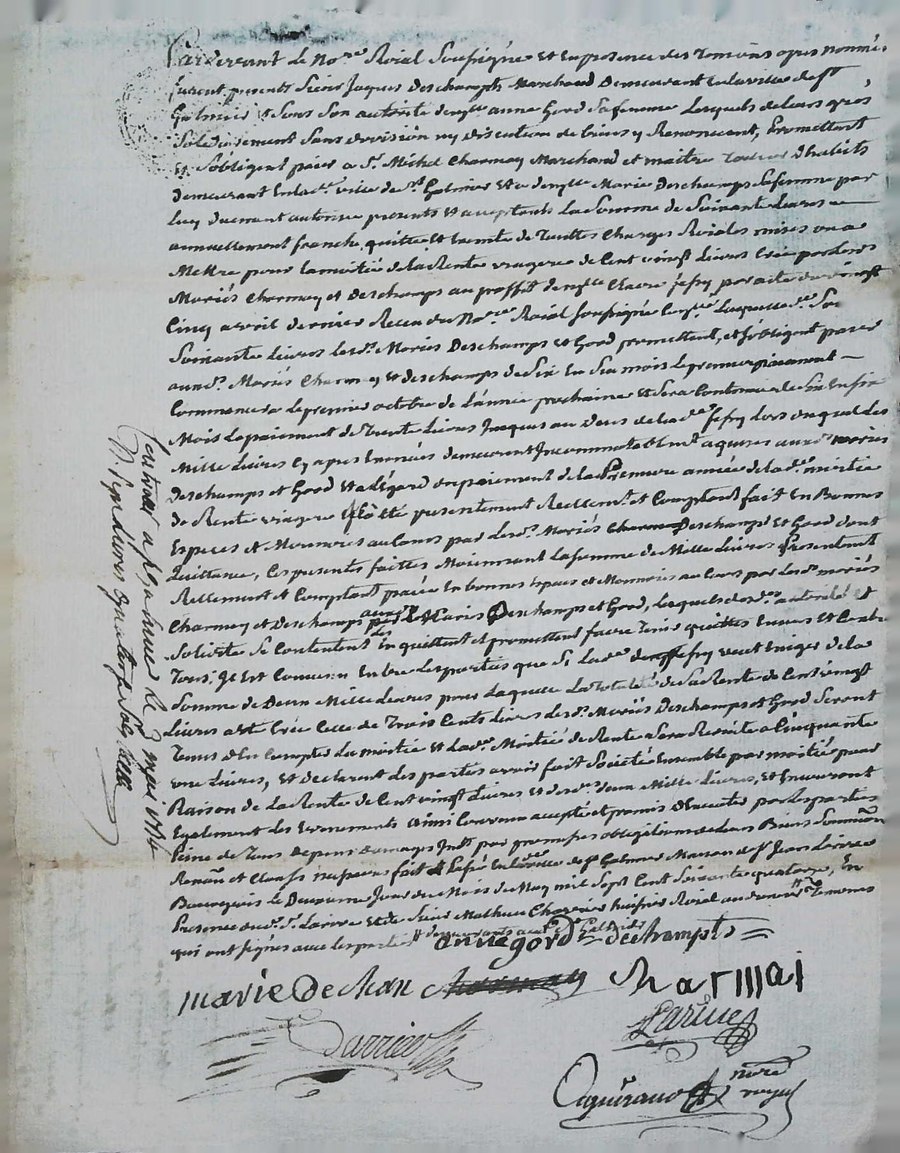 Pardevant le No.re Roial Soussigné et en presence des Temoins apres nommés
furent presents Sieur Jaques Deschampts Marchand Demeurant en la ville de St
Galmier et sous son autorité dem.lle anne Gord Sa femme Lesquels de leurs grés
Solidairement Sans division ny discution de biens y Renonceant, Promettent
et Sobligent paier a S.r Michel Charmay Marchand et maitre tailleur Dhabits
demeurant en lad.e ville de St Galmier et a dem.lle Marie Deschamps Sa femme par
luy duement autorisée presents et acceptants La Somme de Soixante Livres
annuellement franche, quitte et exempte de Touttes Charges Roiales mises ou a
Mettre pour la moitié de la Rente viagere de Cent vingt Livres Crée par lesd
Mariés Charmay et Deschamps au proffit de dem.lle Claire jefry par acte du vingt
Cinq avril dernier Receu du No.re Roial Soussigné Laquelle de So
Soixante Livres lesd. Mariés Deschamps et Gord promettent, et Sobligent paier
auxd. Mariés Charmay et deschamps de Six En Six mois le premier paiement
Commencera Le premier octobre de Lannée prochaine et Sera Continué de Six En Six
Mois Le paiement de Trente Livres Jusques au Deces de lad.e jefry Lors duquel les
Mille Livres Cy apres Enoncés demeureront Incommutablem.t aquises auxd. mariés
Deschamps et Gord Et a Legard du paiement de la Premiere année de lad.e moitié
de Rente viagere Il a été presentement Reellem.t et Comptant fait En Bonnes
Especes et Monnoies au Cours par lesd. Mariés Deschamps et Gord dont
Quittance, Ces presentes faittes Moienant La Somme de Mille Livres Presentement
Reellement et Comptant paiée En bonnes Especes et Monnoies au Cours par lesd. mariés
Charmay et Deschamps auxd. Mariés Deschamps et Gord, Lesquels de lad. autorité et
Solidité Se Contentent Les En quittent et promettent faire Tenir quittes Envers et Contre
Tous, Il Est Convenu Entre Les parties que Si lad.e jefry veut Exiger de la
Somme de Deux Mille Livres pour Laquelle La Totalité de Sa Rente de Cent vingt
Livres a été Crée Celle de Trois Cents Livres lesd. Mariés Deschamps et Gord Seront
Tenus den Compter La moitié et lad.e Moitié de Rente Sera Reduite a Cinquante
une Livres, Et declarent les parties avoir fait Société Ensemble par moitié pour
Raison de La Rente de Cent vingt Livres et desd. deux Mille Livres, Et En courront
Egalement les Evenements ainsi Convenu accepté et promis Executer par les parties
Peine de Tous Depens Domages Int.ts par promesses obligations de leurs Biens Soumissions
Renon.on et Clauses necess.res fait et Passé En lad.e ville de St Galmier Maison de S.r Jean Larive
Bourgeois Le Deuxieme Jour du Mois de May mil Sept Cent Soixante quatorze, En
Presence dud. S.r Larive Et de Sieur Mathieu huissier Roial Temoins
qui ont signés avec les parties demeurants aud.
anne gord Deschampts
marie Dechan Charmai
Larive
aguirand nore
royal
Controlé a St Galmier Le 3 may 1774
R. Sept Livres quatorze Sols